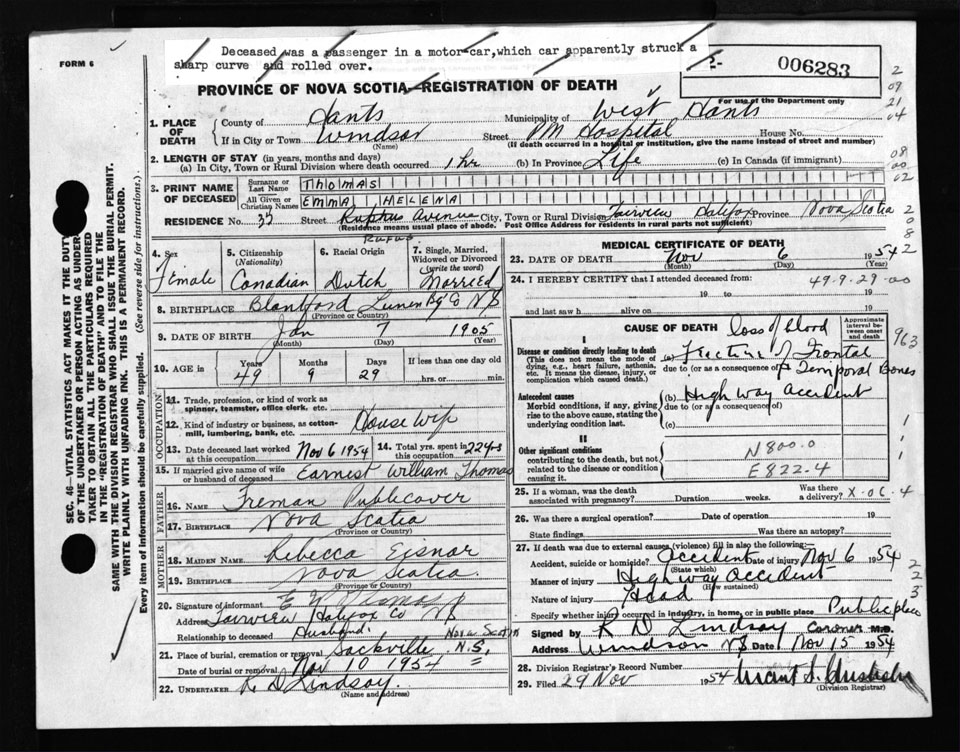 Deceased was a passenger in a motor-car, which car apparently struck a
sharp curve and rolled over.
FORM 6
2- 006283
PROVINCE OF NOVA SCOTIA—REGISTRATION OF DEATH
For use of the Department only
1. PLACE OF DEATH
County of Hants
Municipality of West Hants
If in City or Town Windsor (Name)
Street PM Hospital House No.
(If death occurred in a hospital or institution, give the name instead of street and number)
2. LENGTH OF STAY (in years, months and days)
(a) In City, Town or Rural Division where death occurred 1 hr (b) In Province Life (c) In Canada (if immigrant)
3. PRINT NAME OF DECEASED
Surname or Last Name THOMAS
All Given or Christian Names EMMA HELENA
RESIDENCE No. 35 Street Ruphus Avenue City, Town or Rural Division Fairview Halifax Province Nova Scotia
(Residence means usual place of abode. Post Office Address for residents in rural parts not sufficient)
Rufus
4. Sex Female
5. Citizenship (Nationality) Canadian
6. Racial Origin Dutch
7. Single, Married, Widowed or Divorced (write the word) Married
8. BIRTHPLACE Blantford Lunenbg Co NS
(Province or Country)
9. DATE OF BIRTH Jan 7 1905
(Month) (Day) (Year)
10. AGE in Years Months Days If less than one day old
49 9 29 hrs. or min.
OCCUPATION
11. Trade, profession, or kind of work as spinner, teamster, office clerk, etc.
12. Kind of industry or business, as cotton-mill, lumbering, bank, etc. House Wife
13. Date deceased last worked at this occupation Nov 6 1954
14. Total yrs. spent in this occupation
15. If married give name of wife or husband of deceased Earnest William Thomas
FATHER
16. NAME Freman Publicover
17. BIRTHPLACE Nova Scotia
(Province or Country)
MOTHER
18. MAIDEN NAME Rebecca Eisnor
19. BIRTHPLACE Nova Scotia
(Province or Country)
20. Signature of informant E W Thomas
Address Fairview Halifax Co NS
Relationship to deceased Husband.
21. Place of burial, cremation or removal Sackville N.S. Nova Scotia
Date of burial or removal Nov 10 1954
22. UNDERTAKER R D Lindsay.
(Name and address)
MEDICAL CERTIFICATE OF DEATH
23. DATE OF DEATH Nov 6 1954
(Month) (Day) (Year)
24. I HEREBY CERTIFY that I attended deceased from: 49-9-29-00
19 to 19
and last saw h alive on 19
CAUSE OF DEATH loss of blood
Approximate interval between onset and death
I
Disease or condition directly leading to death
(This does not mean the mode of dying, e.g., heart failure, asthenia, etc. It means the disease, injury, or complication which caused death.)
(a) Fracture of Frontal
due to (or as a consequence of) & Temporal Bones
Antecedent causes
Morbid conditions, if any, giving rise to the above cause, stating the underlying condition last.
(b) High way accident
due to (or as a consequence of)
(c)
II
Other significant conditions
contributing to the death, but not related to the disease or condition causing it.
N800.0
E822.4
25. If a woman, was the death associated with pregnancy? Duration weeks. Was there a delivery? X-06-4
26. Was there a surgical operation? Date of operation 19
State findings Was there an autopsy?
27. If death was due to external causes (violence) fill in also the following:—
Accident, suicide or homicide? Accident Date of injury Nov 6 1954
(State which)
Manner of injury High way Accident
(How sustained)
Nature of injury Head
Specify whether injury occurred in industry, in home, or in public place Public place
Signed by R D Lindsay Coroner M.D.
Address Windsor NS Date Nov 15 1954
28. Division Registrar's Record Number
29. Filed 29 Nov 1954
(Division Registrar)
SEC. 46—VITAL STATISTICS ACT MAKES IT THE DUTY
OF THE UNDERTAKER OR PERSON ACTING AS UNDER-
TAKER TO OBTAIN ALL THE PARTICULARS REQUIRED
IN THE "REGISTRATION OF DEATH" AND TO FILE THE
SAME WITH THE DIVISION REGISTRAR WHO SHALL ISSUE THE BURIAL PERMIT.
WRITE PLAINLY WITH UNFADING INK. THIS IS A PERMANENT RECORD.
Every item of information should be carefully supplied. (See reverse side for instructions.)
2
09
21
04
08
00
02
2
0
8
2
963
1
1
1
2
2
3